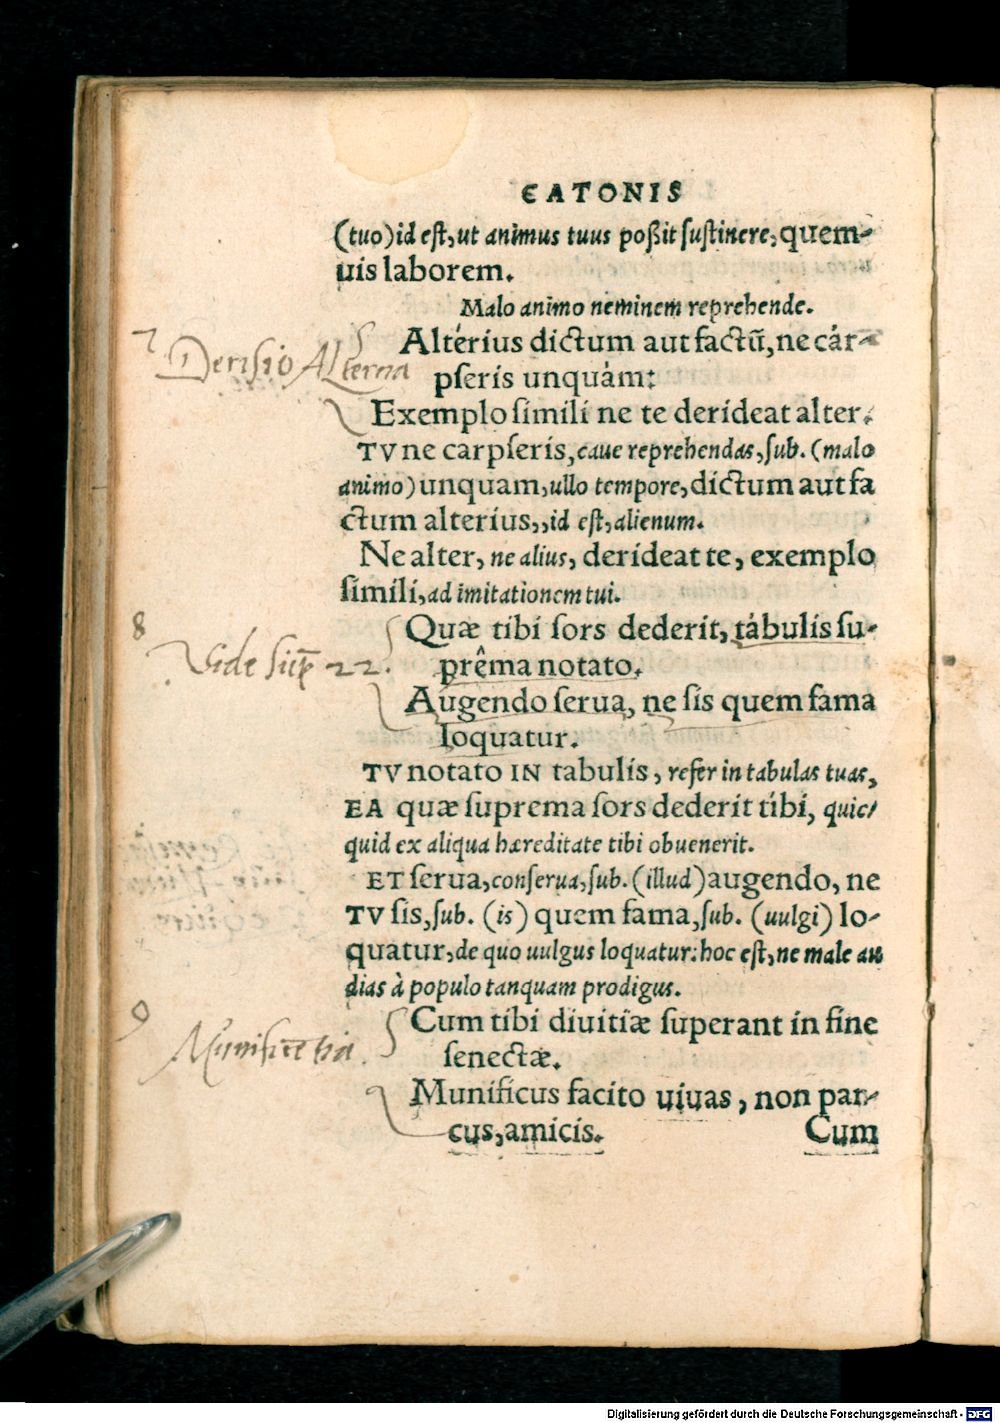 CATONIS
(tuo) id est, ut animus tuus poßit sustinere, quem-
uis laborem.
Malo animo neminem reprehende.
7
Derisio Alterna
Altérius dictum aut factũ, ne cár-
pseris unquàm:
Exemplo simili ne te derideat alter.
TV ne carpseris, caue reprehendas, sub. (malo
animo) unquam, ullo tempore, dictum aut fa
ctum alterius,, id est, alienum.
Ne alter, ne alius, derideat te, exemplo
simili, ad imitationem tui.
8
Vide sup 22.
Quæ tibi sors dederit, tábulis su-
prêma notato.
Augendo serua, ne sis quem fama
loquatur.
TV notato IN tabulis, refer in tabulas tuas,
EA quæ suprema sors dederit tibi, quic/
quid ex aliqua hæreditate tibi obuenerit.
ET serua, conserua, sub. (illud) augendo, ne
TV sis, sub. (is) quem fama, sub. (uulgi) lo-
quatur, de quo uulgus loquatur: hoc est, ne male au
dias à populo tanquam prodigus.
9
Munificẽtia.
Cum tibi diuitiæ superant in fine
senectæ.
Munificus facito uiuas, non par-
cus, amicis.
Cum
Digitalisierung gefördert durch die Deutsche Forschungsgemeinschaft - DFG